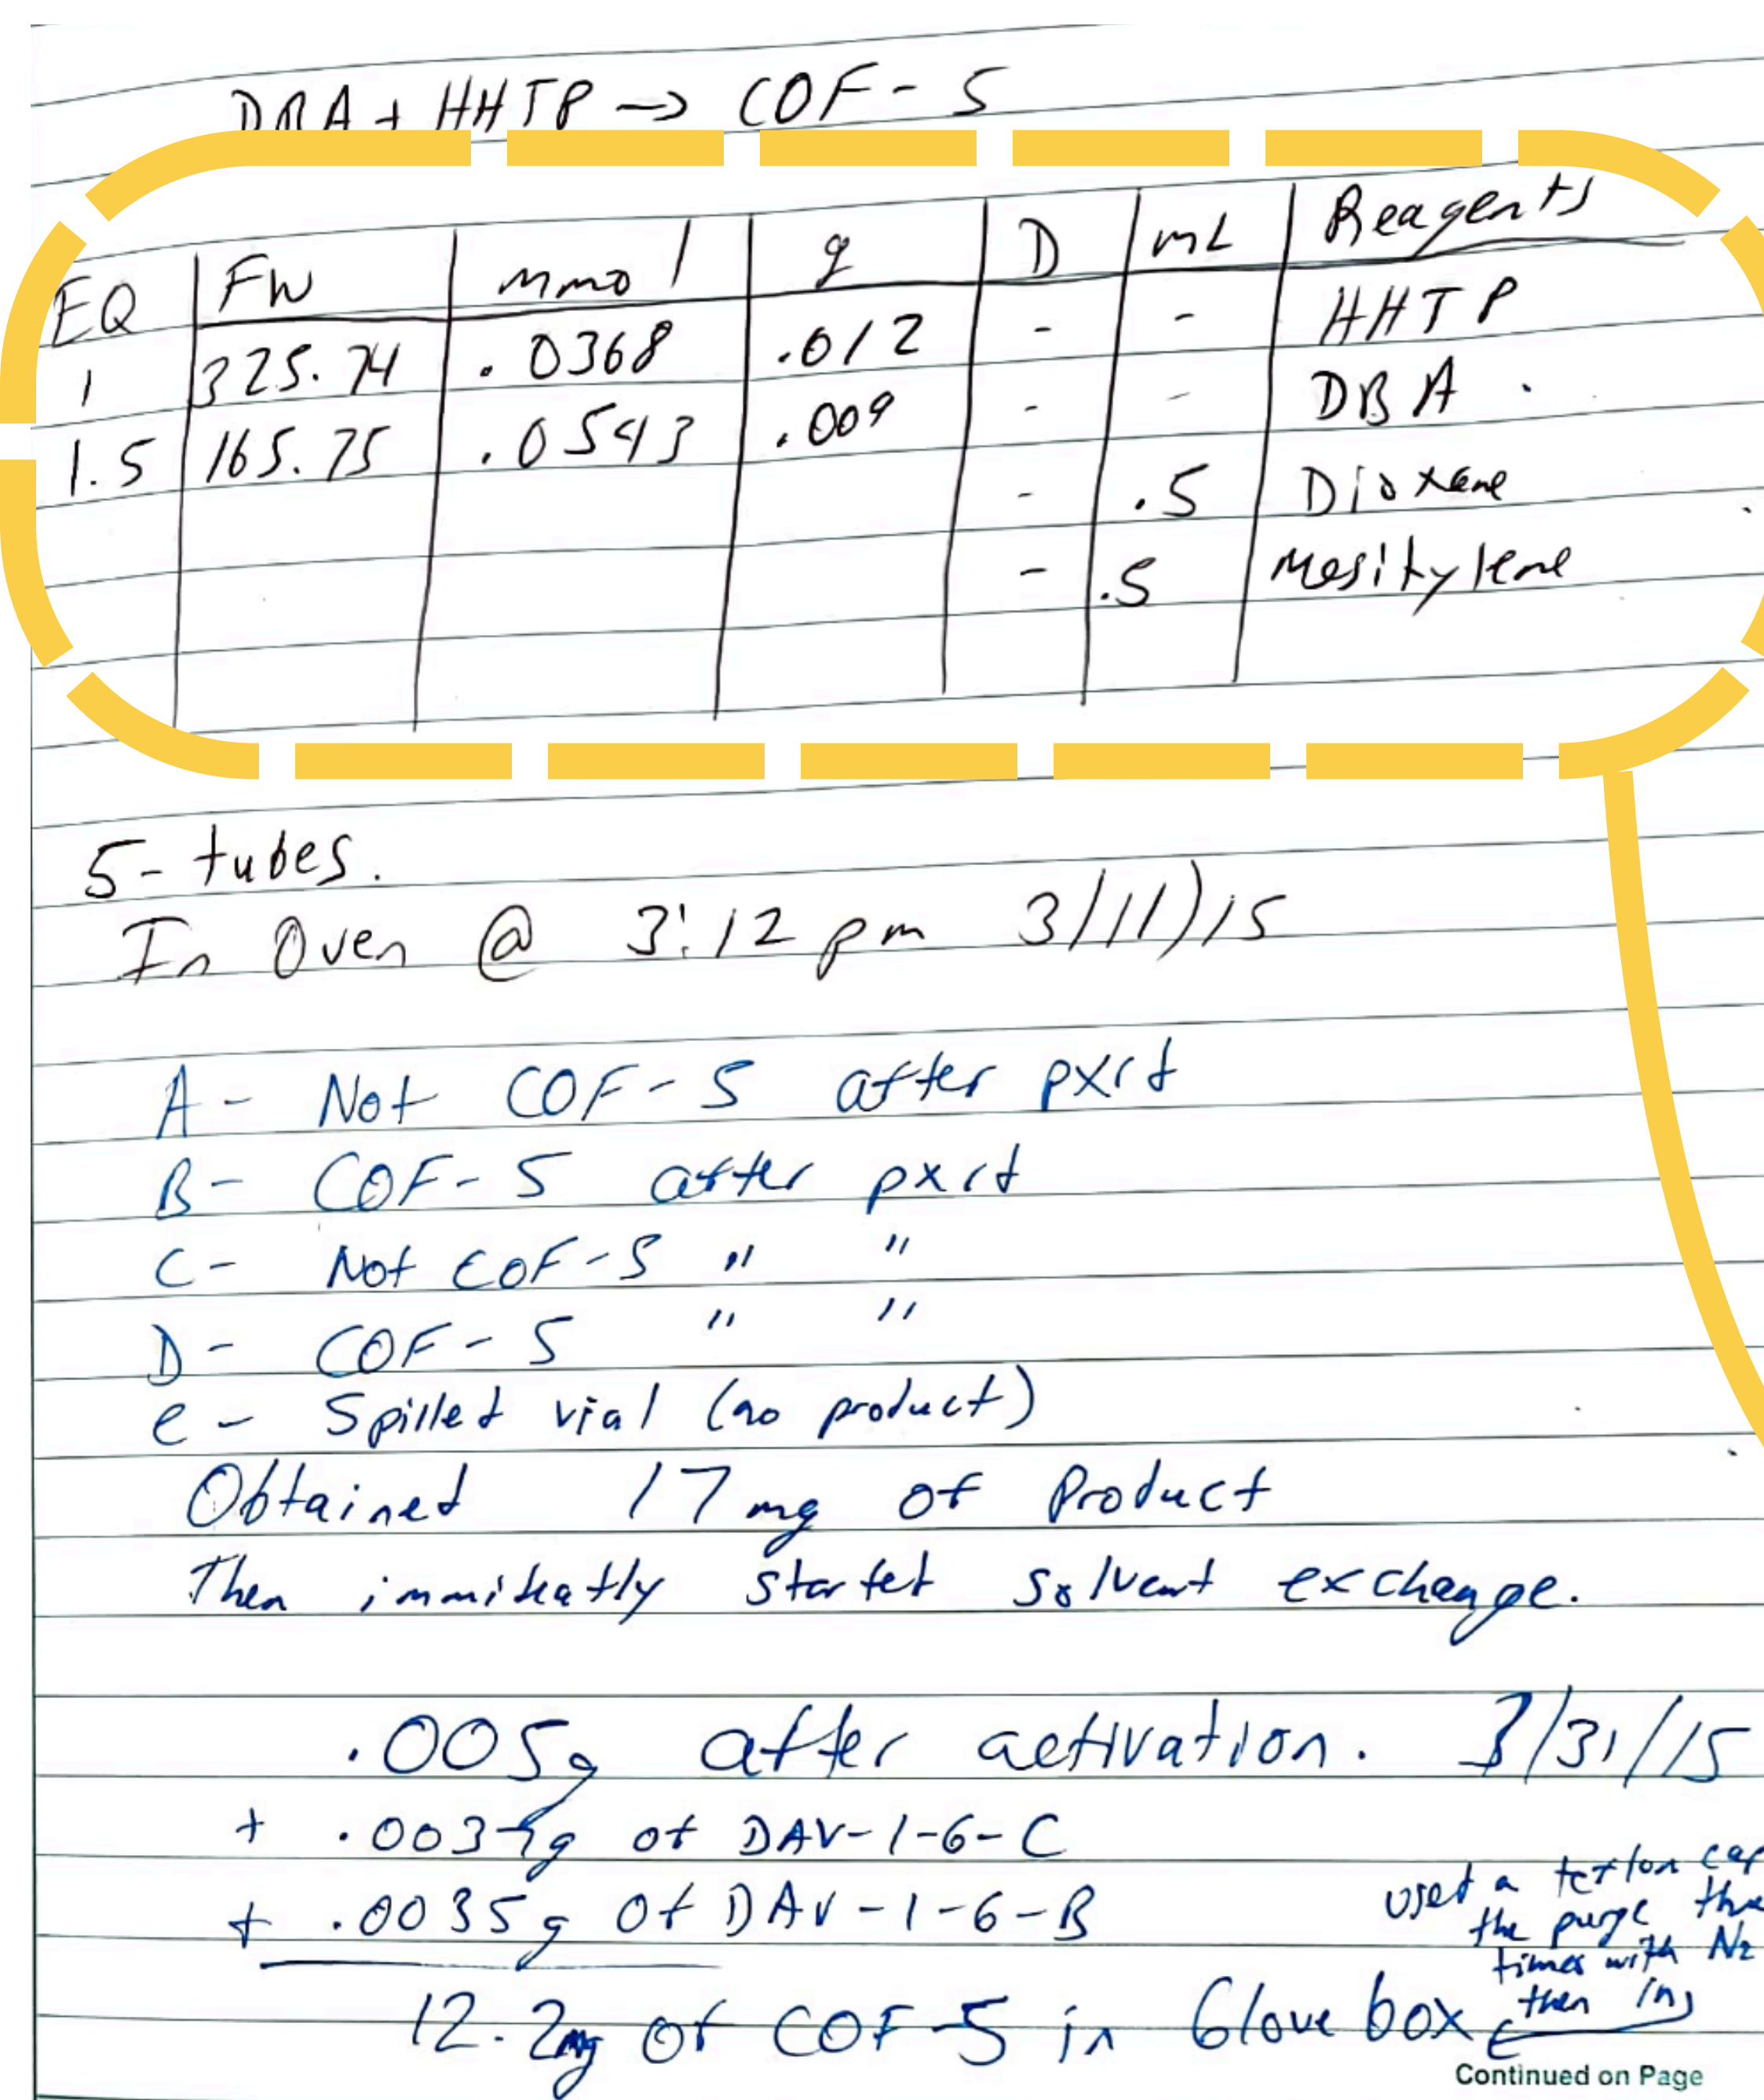 DBA + HHTP → COF-5
EQ FW mmol g D mL Reagents
1 325.74 .0368 .012 - - HHTP
1.5 165.75 .0543 .009 - - DBA
- .5 Dioxane
- .5 Mesitylene
5-tubes.
In Oven @ 3:12 pm 3/11/15
A - Not COF-5 after pxrd
B - COF-5 after pxrd
C - Not COF-5 " "
D - COF-5 " "
e - Spilled vial (no product)
Obtained 17 mg of Product
Then immidiatly started solvent exchange.
.005g after activation. 3/31/15
+ of DAV-1-6-C
+ .0035g of DAV-1-6-B
used a teflon cap
the purge
times with N2
then in
12.2mg of COF-5 in Glove box
Continued on Page